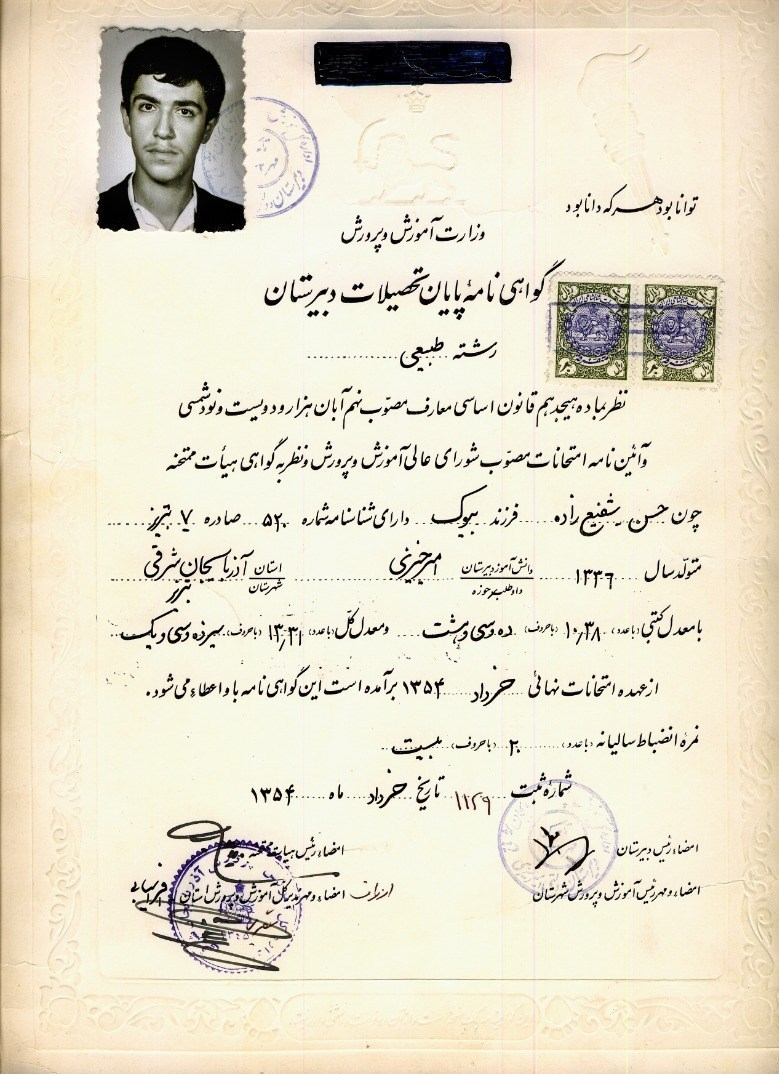 توانا بود هر که دانا بود
وزارت آموزش و پرورش
گواهی نامهٔ پایان تحصیلات دبیرستان
رشته طبیعی
نظر بماده هیجدهم قانون اساسی معارف مصوّب نهم آبان هزار و دویست و نود شمسی
و آئین نامه امتحانات مصوّب شورای عالی آموزش و پرورش و نظر به گواهی هیأت ممتحنه
چون حسن شفیع زاده فرزند بیوک دارای شناسنامه شماره ۵۲۰ صادره ۷ تبریز
متولّد سال ۱۳۳۶ دانش آموز دبیرستان داوطلب حوزه امیرخیزی استان آذربایجان شرقی شهرستان تبریز
با معدل کتبی (با عدد) ۱۰/۳۸ (با حروف) ده و سی و هشت و معدل کلّ (با عدد) ۱۳/۳۱ (با حروف) سیزده و سی و یک
از عهده امتحانات نهائی خرداد ۱۳۵۴ برآمده است این گواهی نامه باو اعطاء می شود.
نمرهٔ انضباط سالیانه (با عدد) ۲۰ (با حروف) بیست
شمارهٔ ثبت ۱۱۲۹ تاریخ خرداد ماه ۱۳۵۴
امضاء رئیس دبیرستان امضاء رئیس هیأت ممتحنه
امضاء و مهر رئیس آموزش و پرورش شهرستان امضاء و مهر مدیر کل آموزش و پرورش استان